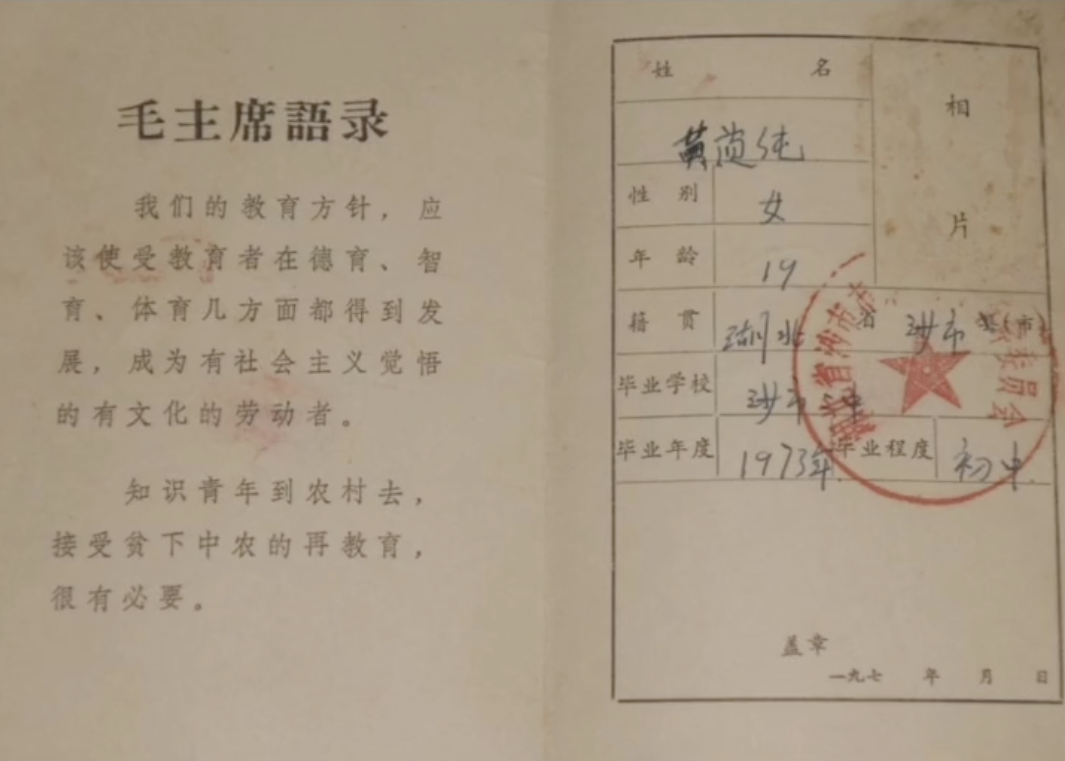 毛主席語录
我们的教育方针，应
该使受教育者在德育、智
育、体育几方面都得到发
展，成为有社会主义觉悟
的有文化的劳动者。
知识青年到农村去，
接受贫下中农的再教育，
很有必要。
姓 名
黄 纯
相
片
性 别 女
年 龄 19
籍 贯 湖北 省 沙市 市
毕业学校 沙市 中
毕业年度 1973年 毕业程度 初中
湖北省沙市市 委员会
盖章
一九七 年 月 日